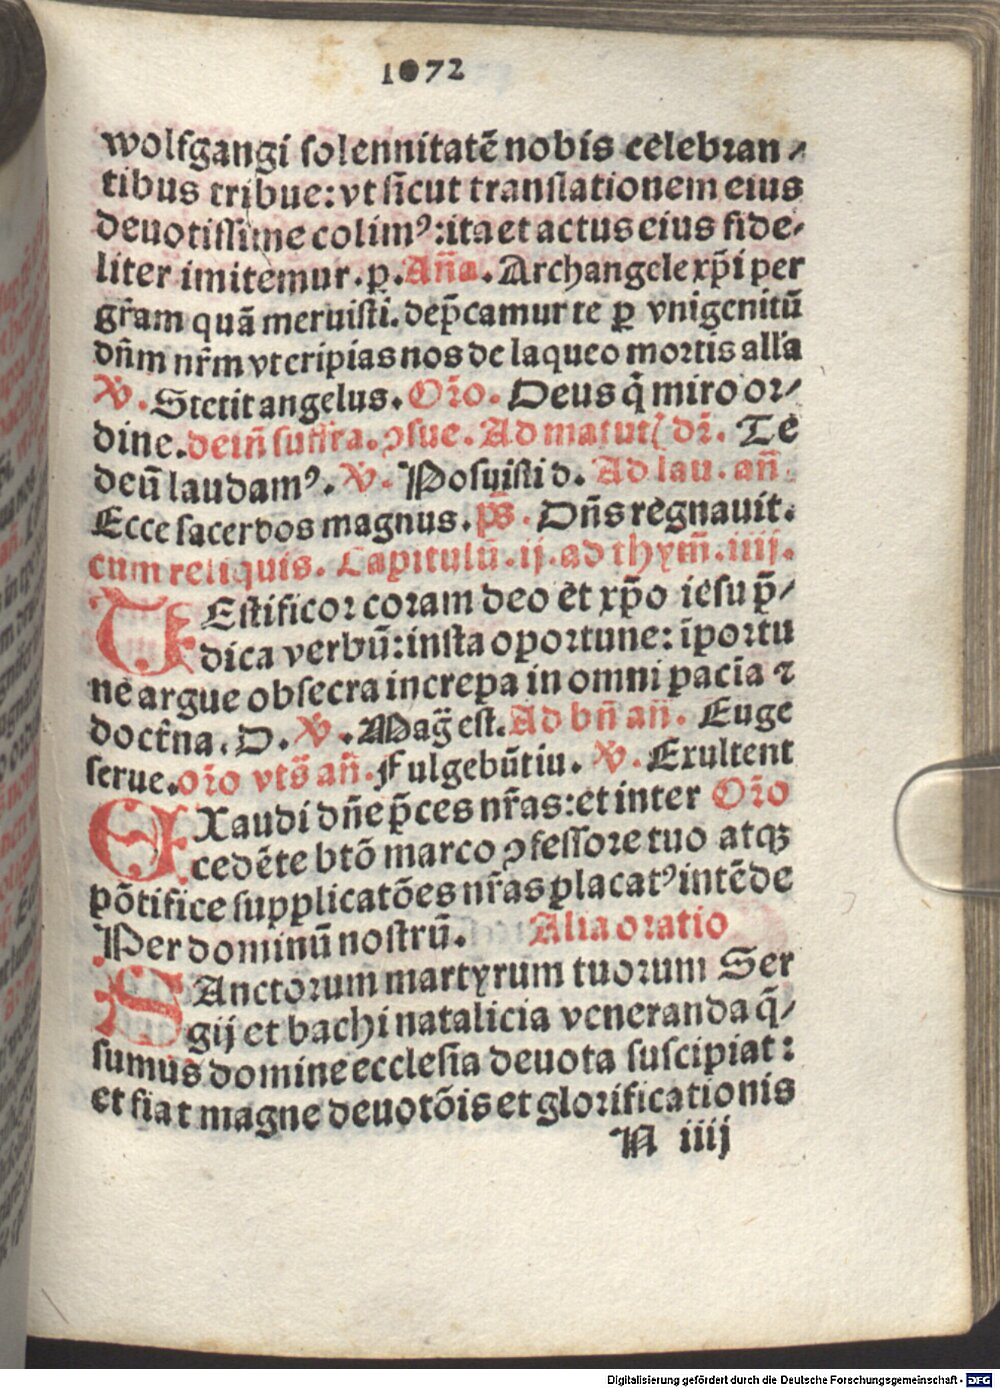 1072
wolfgangi ſolennitatē nobis celebꝛan⸗
tibus tribue: vt ſicut tranſlationem eius
deuotiſſime colimꝰ: ita et actus eius fide⸗
liter imitemur. ꝑ. Añа. Archangele xp̄i per
gr̄am quā meruiſti. dep̄camur te ꝑ vnigenitū
dn̄m nr̄m vt eripias nos de laqueo moꝛtis all'a
℣. Stetit angelus. Oꝛ̄o. Deus q̄ miro oꝛ⸗
dine. dein̄ ſuffra. ꝯſue. Ad matut' dꝛ̄. Te
deū laudamꝰ. ℣. Poſuiſti d. Ad lau. an̄
Ecce ſacerdos magnus. ps̄. Dn̄s regnauit.
cum reliquis. Capitulū. ij. ad thym̄. iiij.
TEſtificoꝛ coram deo et xp̄o ieſu p̄⸗
dica verbū: inſta opoꝛtune: īpoꝛtu
ne argue obſecra increpa in omni pacīa ⁊
doct̄na. D. ℣. Maḡ eſt. Ad bn̄ an̄. Euge
ſerue. oꝛ̄o vts̄ an̄. Fulgebūt iu. ℣. Exultent
EXaudi dn̄e p̄ces nr̄as: et inter Oꝛ̄o
cedēte btō marco ꝯfeſſoꝛe tuo atqꝫ
pōtifice ſupplicatōes nr̄as placatꝰ intēde
Per dominū noſtrū. Alia oꝛatio
SAnctoꝛum martyrum tuoꝛum Ser
gij et bachi natalicia veneranda q̄⸗
ſumus domine eccleſia deuota ſuſcipiat:
et fiat magne deuotōis et gloꝛificationis
N iiij
Digitalisierung gefördert durch die Deutsche Forschungsgemeinschaft - DFG